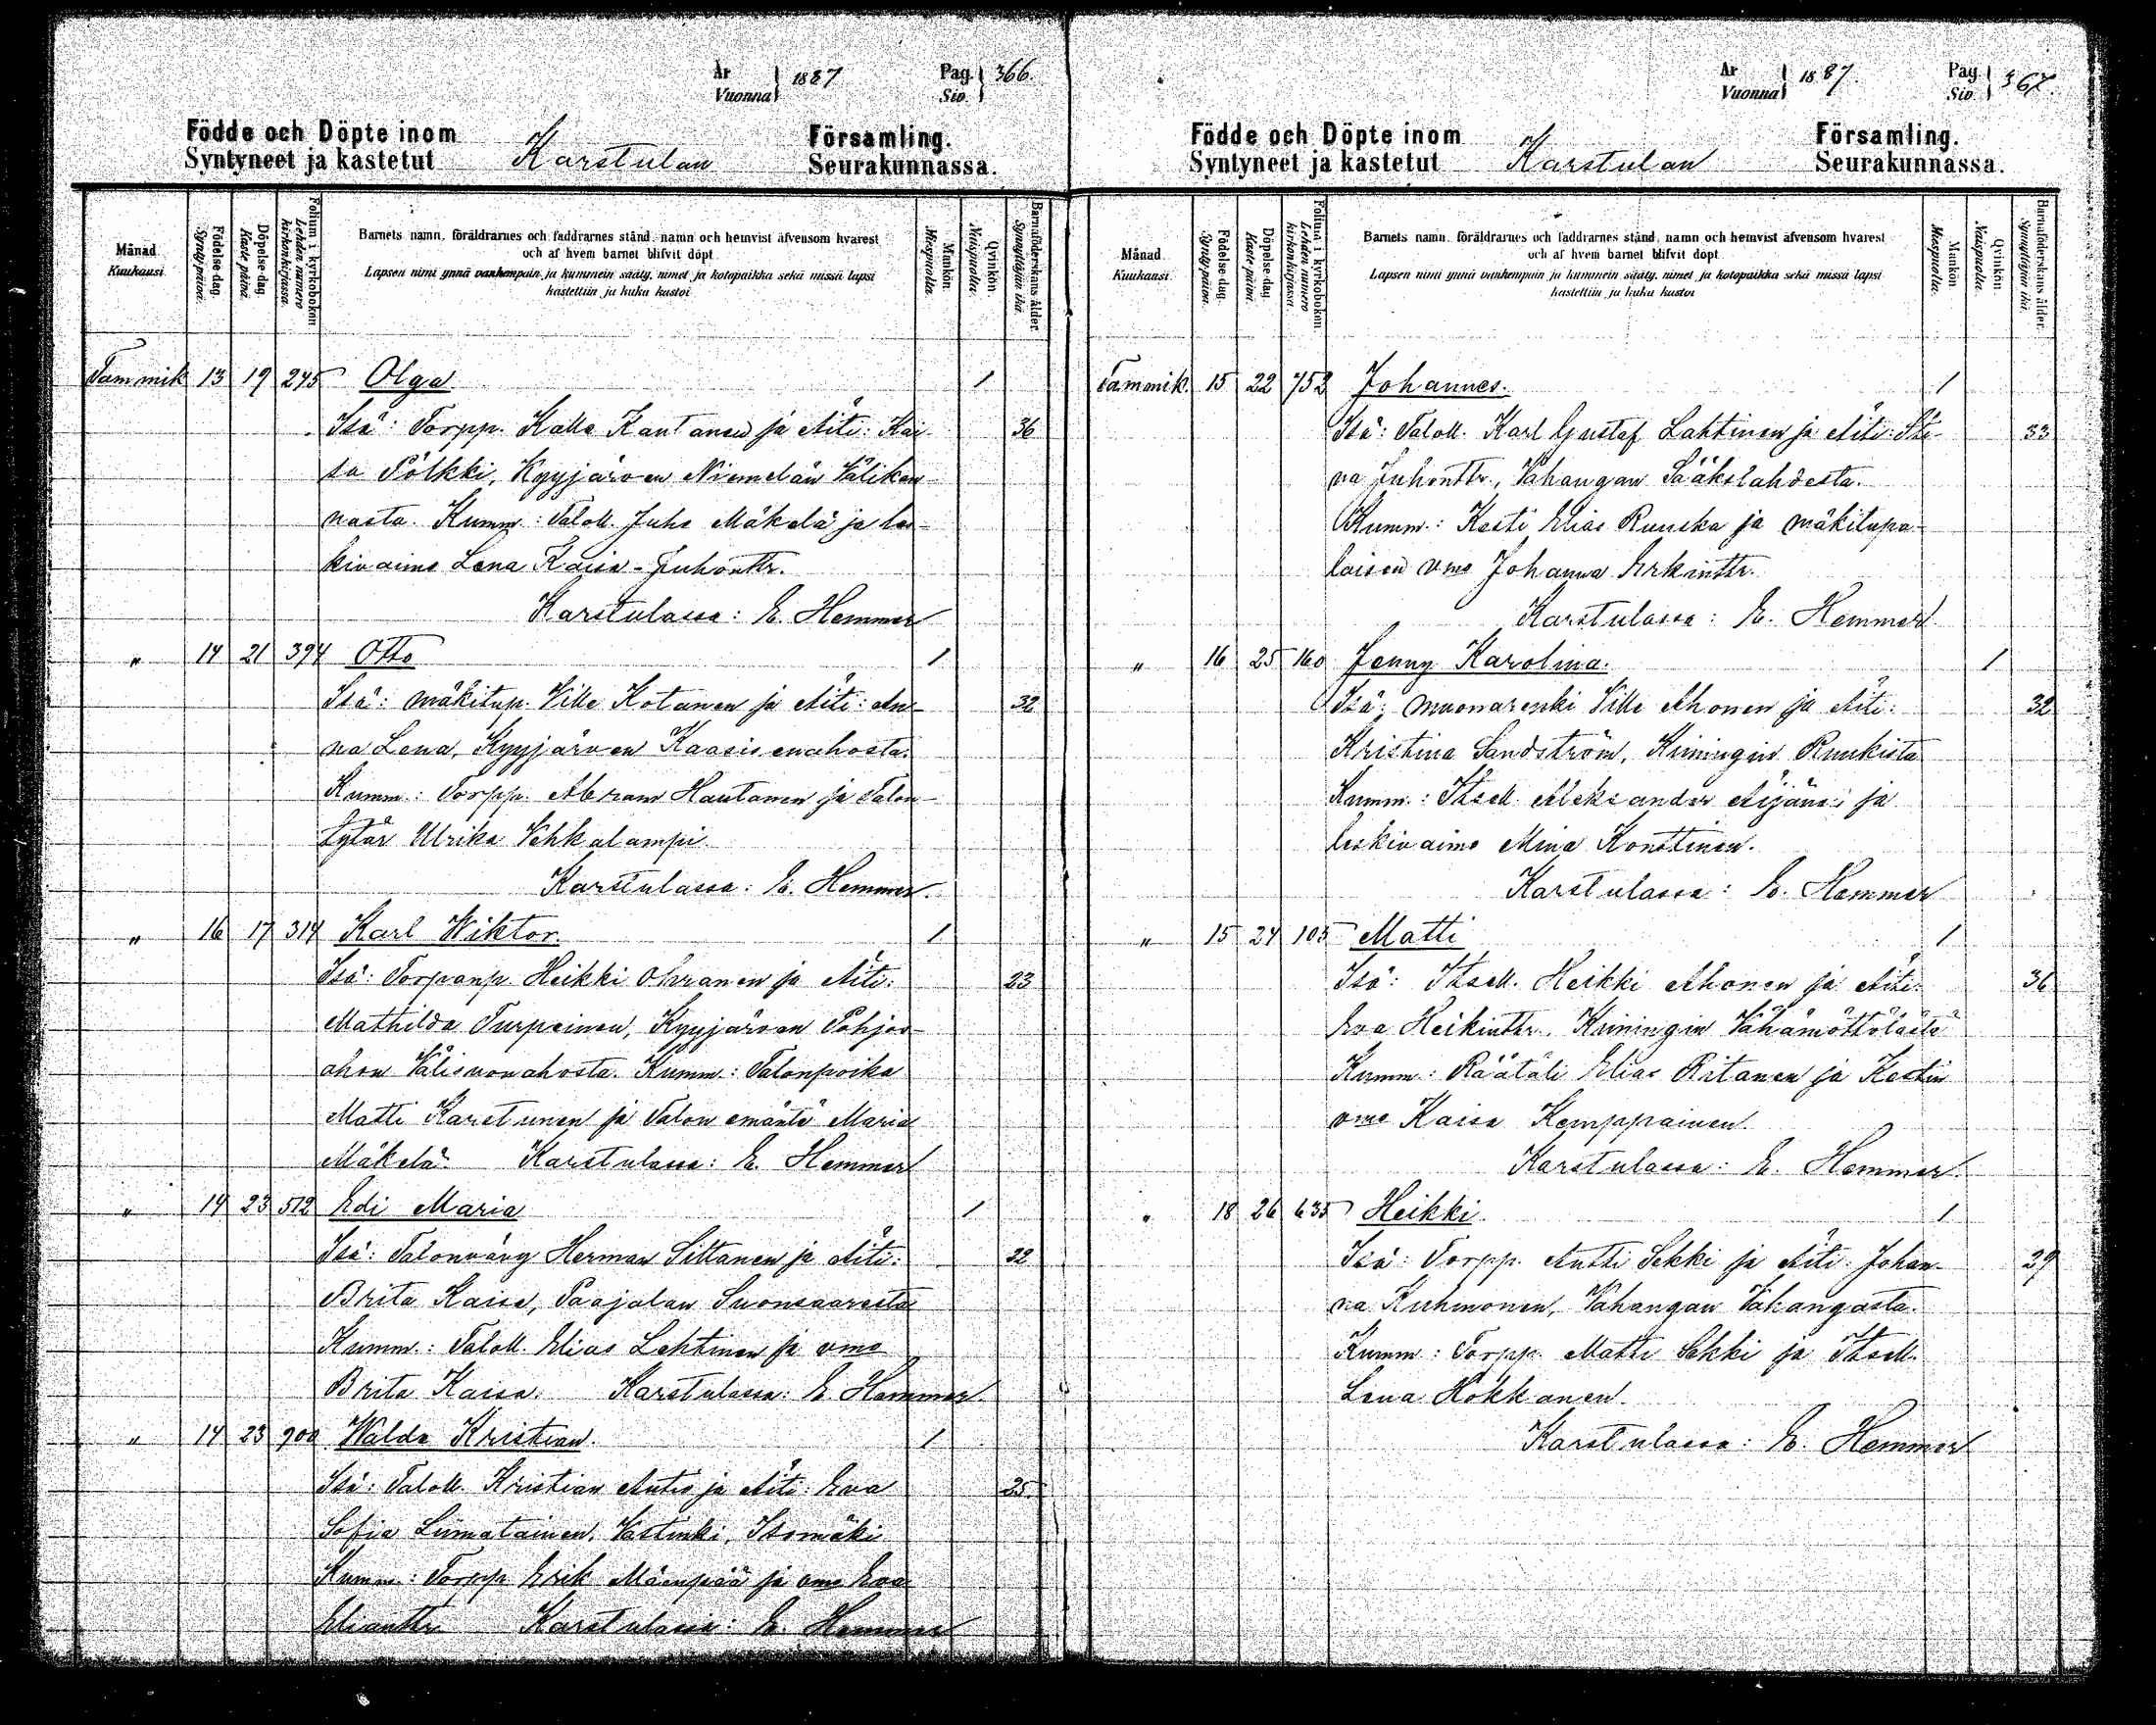 År
Vuonna
1887
Pag.
Siv.
366.
Födde och Döpte inom
Syntyneet ja kastetut
Karstulan
Församling.
Seurakunnassa.
Månad
Kuukausi
Födelse-dag.
Synty-päivä.
Döpelse-dag.
Kaste-päivä.
Folium i kyrkoboken
Lehden numero
kirkonkirjassa.
Barnets namn, föräldrarnes och faddrarnes stånd, namn och hemvist äfvensom hvarest
och af hvem barnet blifvit döpt
Lapsen nimi ynnä vanhempain ja kummein sääty, nimet ja kotopaikka sekä missä lapsi
kastettiin ja kuka kastoi
Mankön.
Miespuolia.
Qvinkön.
Naispuolia.
Barnaföderskans ålder.
Synnyttäjän ikä.
Tammik 13 19 245 Olga 1
Isä: Torpp. Kalle Kautanen ja Äiti: Kai- 36
sa Pölkki, Kyyjärven Niemelän Välikan-
nasta. Kumm: Taloll. Juho Mäkelä ja les-
kivaimo Lena Kaisa Juhontr.
Karstulassa: E. Hemmer
" 14 21 394 Otto 1
Isä: mäkitup. Ville Kotanen ja Äiti: An- 32
na Lena, Kyyjärven Kaasisenahosta.
Kumm: Torpp. Abram Hautanen ja Talon
tytär Ulrika Vehkalampi.
Karstulassa: E. Hemmer.
" 16 17 314 Karl Wiktor. 1
Isä: Torpanp. Heikki Ohranen ja Äiti: 23
Mathilda Turpeinen, Kyyjärven Pohjas-
ahon Välisuonahosta. Kumm: Talonpoika
Matti Karstunen ja Talon emäntä Maria
Mäkelä. Karstulassa: E. Hemmer
" 14 23 512 Edi Maria 1
Isä: Talonvävy Herman Sittanen ja Äiti: 22
Brita Kaisa, Paajalan Suonsaaresta
Kumm: Taloll. Elias Lehtinen ja vmo
Brita Kaisa. Karstulassa: E. Hemmer
" 14 23 900 Waldo Kristian. 1
Isä: Taloll. Kristian Autio ja Äiti: Eva 25
Sofia Liimatainen, Vastinki, Isomäki
Kumm: Torpp. Erik Mäenpää ja vmo Eva
Eliantr. Karstulassa: E. Hemmer
År
Vuonna
1887.
Pag.
Siv.
367.
Födde och Döpte inom
Syntyneet ja kastetut
Karstulan
Församling.
Seurakunnassa.
Månad.
Kuukausi.
Födelse-dag.
Synty-päivä.
Döpelse-dag.
Kaste-päivä.
Folium i kyrkoboken.
Lehden numero
kirkonkirjassa.
Barnets namn, föräldrarnes och faddrarnes stånd, namn och hemvist äfvensom hvarest
och af hvem barnet blifvit döpt
Lapsen nimi ynnä vanhempain ja kummein sääty, nimet ja kotopaikka sekä missä lapsi
kastettiin ja kuka kastoi
Mankön.
Miespuolia.
Qvinkön.
Naispuolia.
Barnaföderskans ålder.
Synnyttäjän ikä.
Tammik. 15 22 752 Johannes. 1
Isä: Taloll. Karl Gustaf Lahtinen ja Äiti: Sti- 33
na Juhontr., Vahangan Sääkslahdesta.
Kumm: Kesti Elias Ruuska ja mäkitupa-
laisen vmo Johanna Erkintr.
Karstulassa: E. Hemmer
" 16 25 160 Jenny Karolina. 1
Isä: muonarenki Ville Ahonen ja Äiti: 32
Kristina Sandström, Kiiningin Ruukista
Kumm: Itsell. Aleksander Äijänen ja
leskivaimo Mina Konttinen.
Karstulassa: E. Hemmer
" 15 24 105 Matti 1
Isä: Itsell. Heikki Ahonen ja Äiti: 36
Eva Heikintr. Kiiningin Vähämöttöläst
Kumm: Räätäli Elias Ritanen ja Kestin
vmo Kaisa Kemppainen.
Karstulassa: E. Hemmer.
" 18 26 635 Heikki. 1
Isä: Torpp. Antti Sekki ja Äiti: Johan- 29
na Kuhmonen, Vahangan Vahangasta.
Kumm: Torpp. Matti Sekki ja Itsell.
Lena Hokkanen.
Karstulassa: E. Hemmer